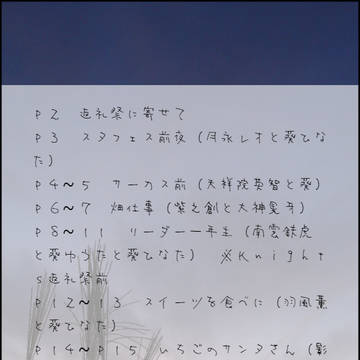 P2 返礼祭に寄せて
P3 スタフェス前夜(月永レオと葵ひな
た)
P4〜5 サーカス前(天祥院英智と葵)
P6〜7 畑仕事(紫之創と大神晃牙)
P8〜11 リーダー一年生(南雲鉄虎
と葵ゆうたと葵ひなた) ※Knight
s返礼祭前
P12〜13 スイーツを食べに(羽風薫
と葵ひなた)
P14〜P15 いちごのサンタさん(影